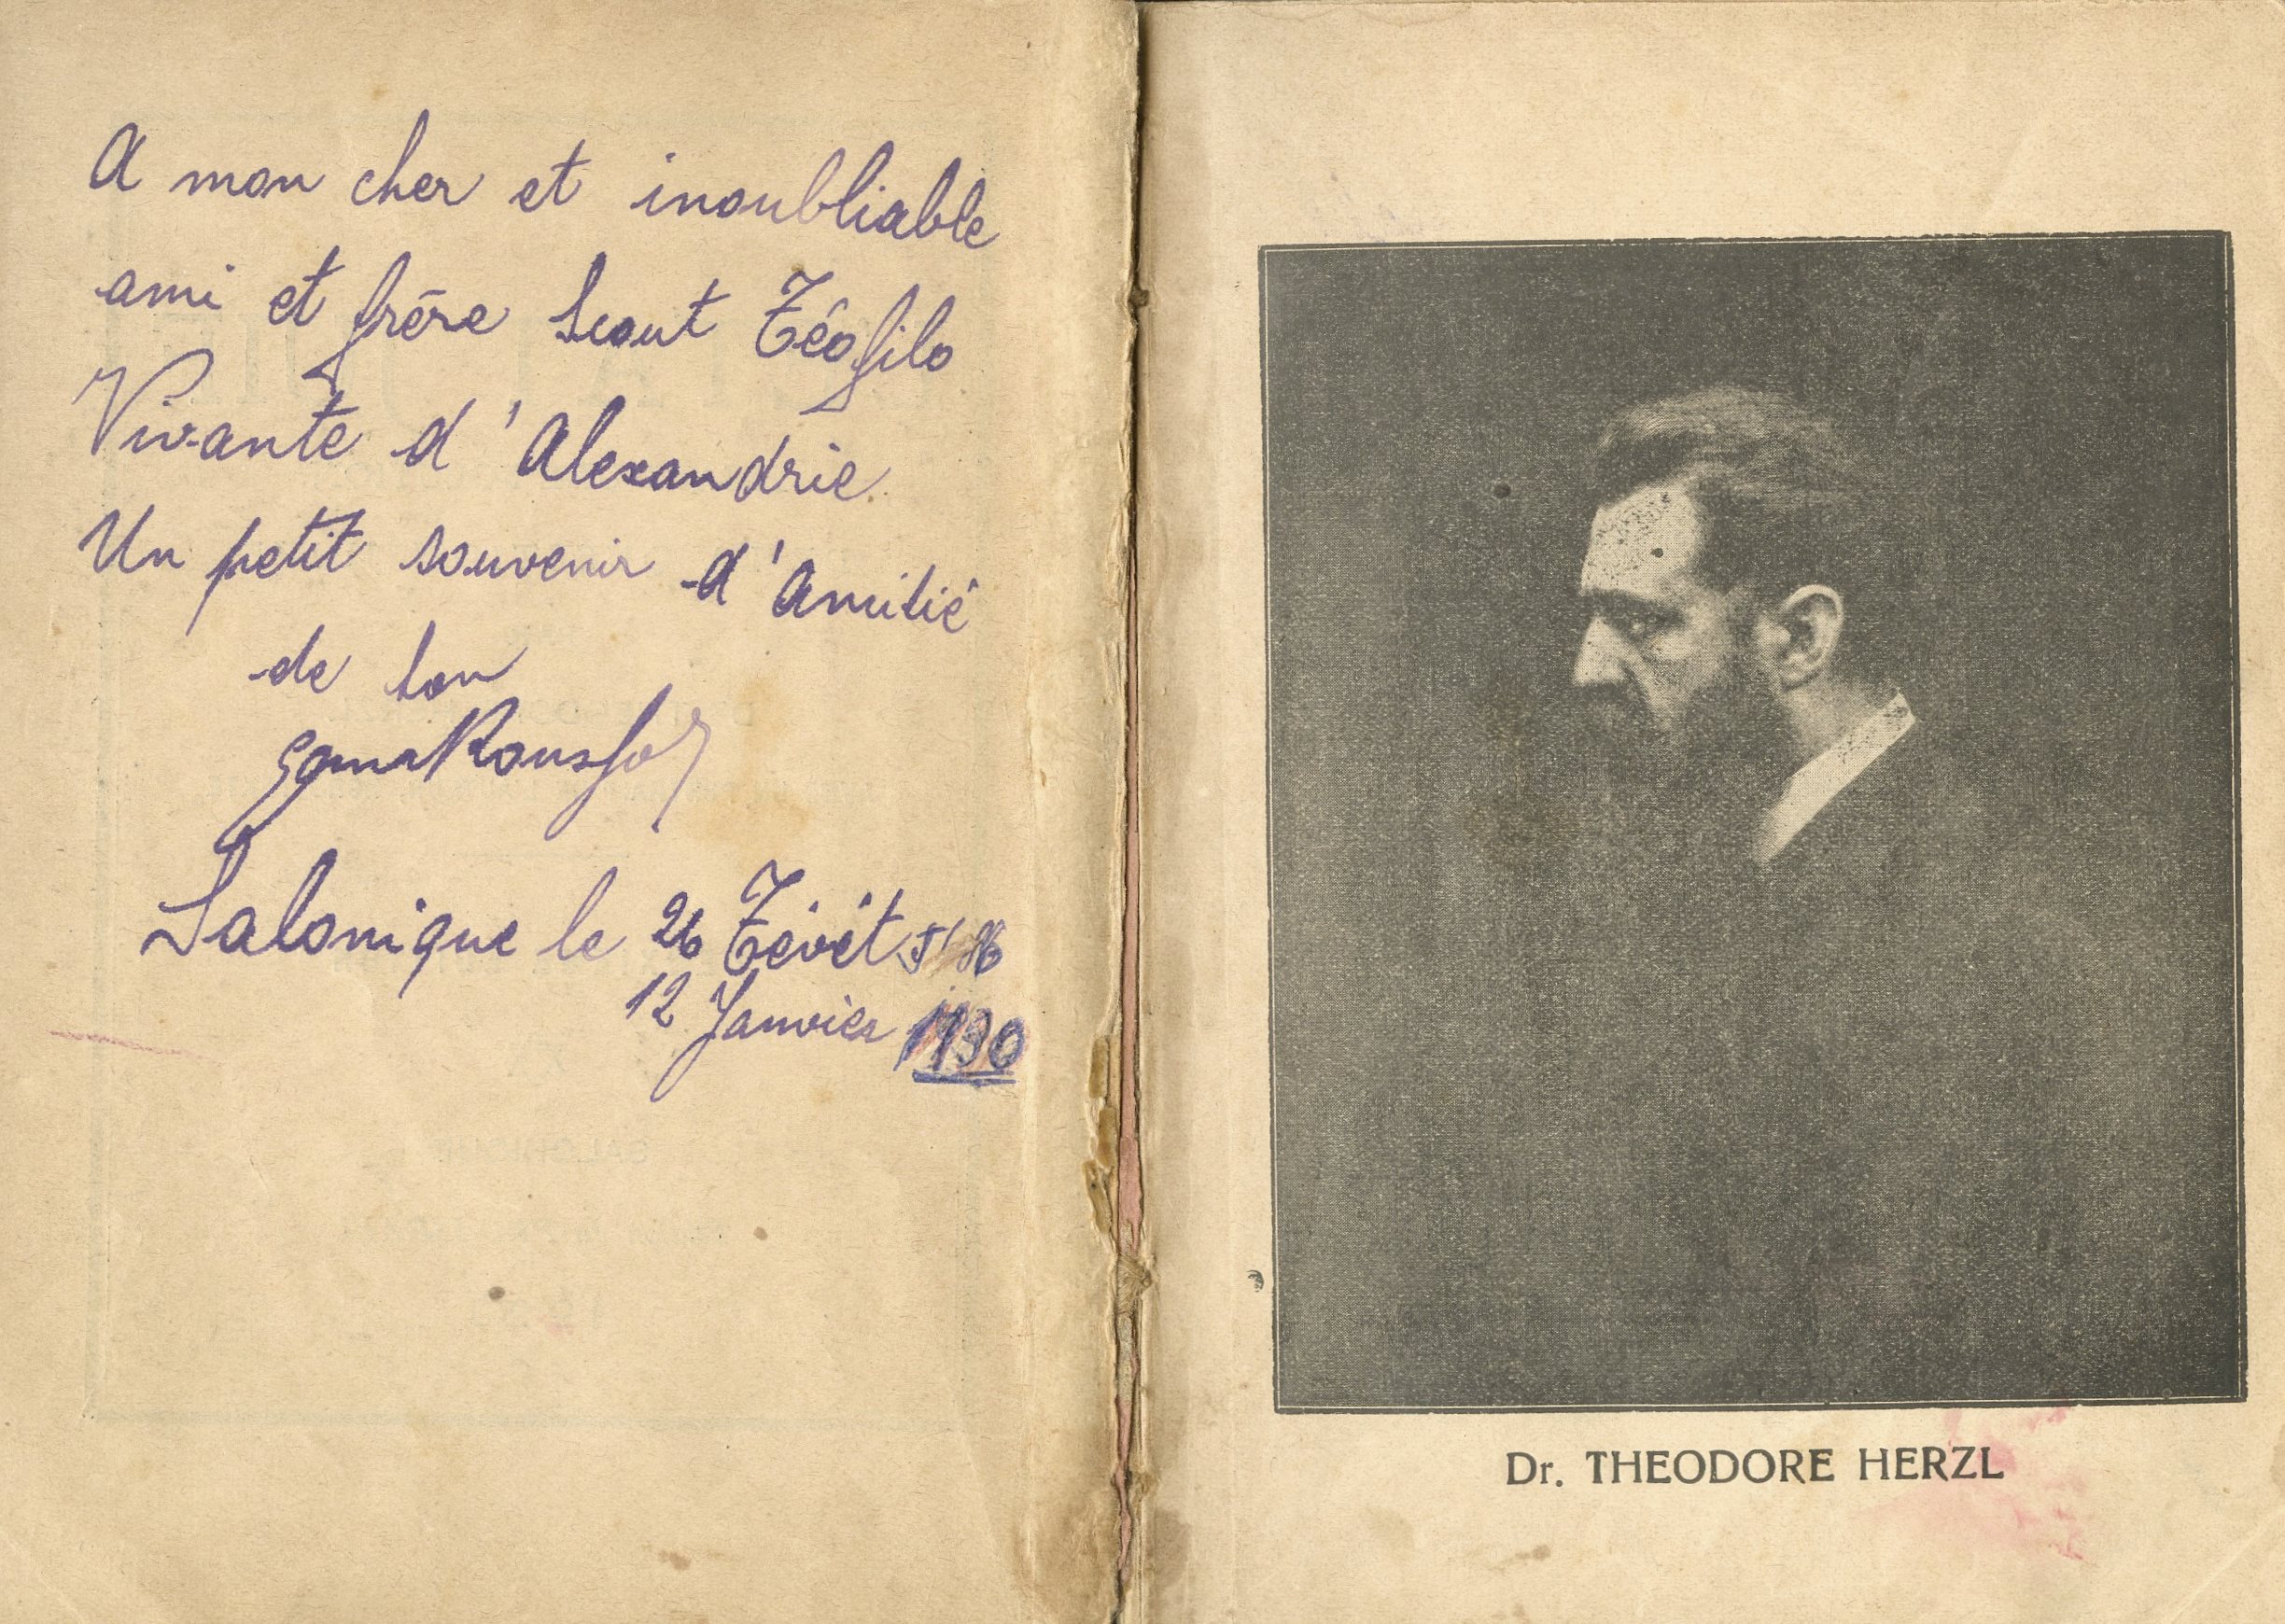 A mon cher et inoubliable
ami et frère Scout Téofilo
Vivante d'Alexandrie
Un petit souvenir d'Amitié
de ton
Salonique le 26 Tévét
12 Janvier 1930
Dr. THEODORE HERZL